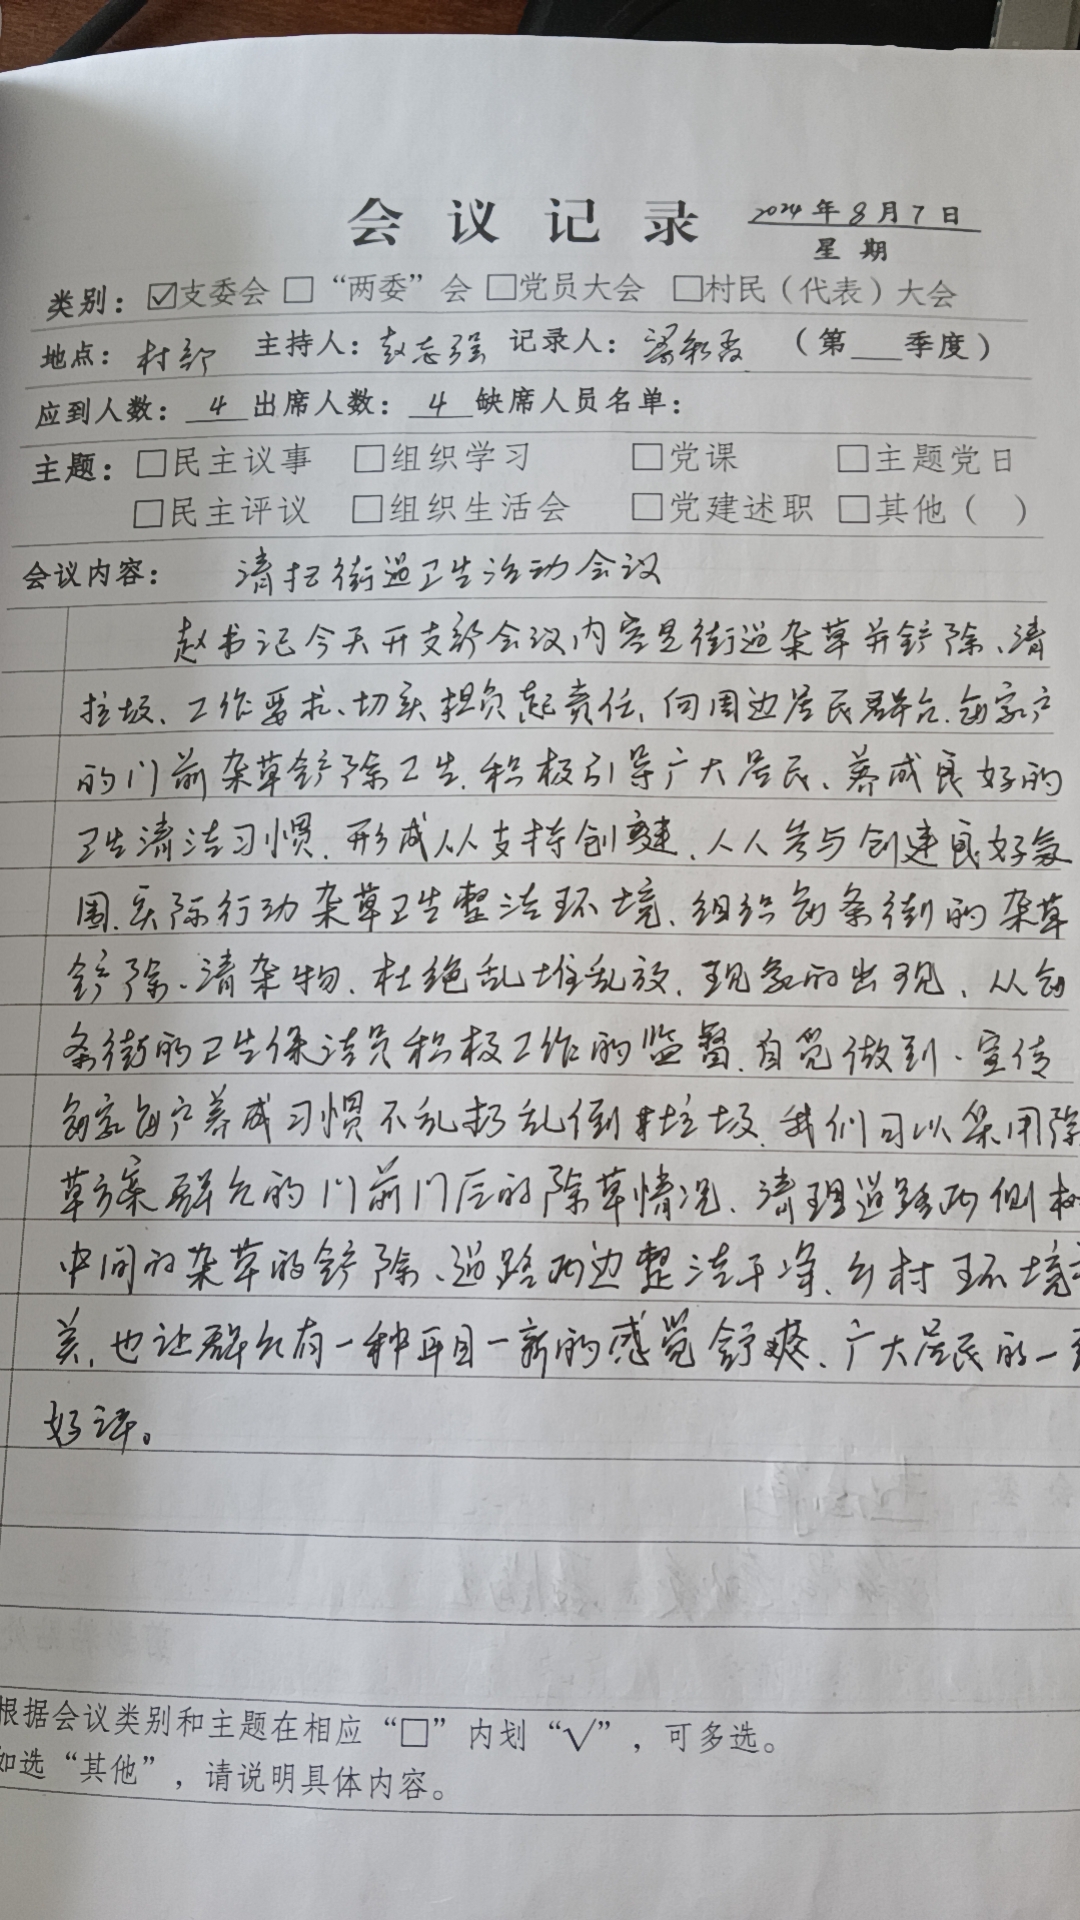 会议记录 2024年8月7日
星期
类别：☑支委会 □“两委”会 □党员大会 □村民（代表）大会
地点：村部 主持人：赵志强 记录人：（第___季度）
应到人数：4 出席人数：4 缺席人员名单：
主题：□民主议事 □组织学习 □党课 □主题党日
□民主评议 □组织生活会 □党建述职 □其他（ ）
会议内容： 清扫街道卫生活动会议
赵书记今天开支部会议内容是街道杂草并铲除、清
垃圾、工作要求、切实担负起责任、向周边居民群众、每家户
的门前杂草铲除卫生、积极引导广大居民、养成良好的
卫生清洁习惯、形成人人支持创建、人人参与创建良好氛
围、实际行动杂草卫生整洁环境、组织每条街的杂草
铲除、清杂物、杜绝乱堆乱放、现象的出现、从每
条街的卫生保洁员积极工作的监督、自觉做到、宣传
每家每户养成习惯不乱扔乱倒垃圾、我们可以采用除
草方案群众的门前门后的除草情况、清理道路两侧树
中间的杂草的铲除、道路两边整洁干净、乡村环境
美、也让群众有一种耳目一新的感觉舒爽、广大居民的一致
好评。
根据会议类别和主题在相应“□”内划“√”，可多选。
如选“其他”，请说明具体内容。